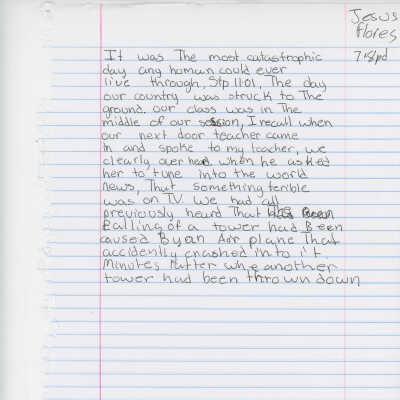 Jesus
flores
7:51pd
It was The most catastrophic
day any human could ever
live through, Stp 11.01, The day
our country was struck to The
ground. our class was in The
middle of our session, I recall when
our next door teacher came
in and spoke to my teacher, we
clearly over heard when he asked
her to tune into the world
news, That something terrible
was on TV. we had all
previously heard That
Falling of a tower had Been
caused By an Air plane That
accidently crashed into it.
Minutes after whe another
tower had been thrown down